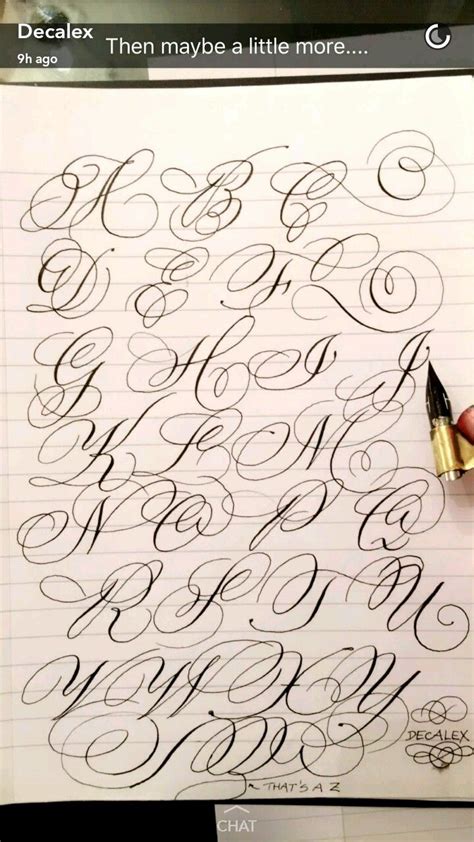 Decalex
9h ago
Then maybe a little more....
A B C
D E F
G H I J
K L M
N O P Q
R S T U
V W X Y
Z
DECALEX
THAT'S A Z
CHAT